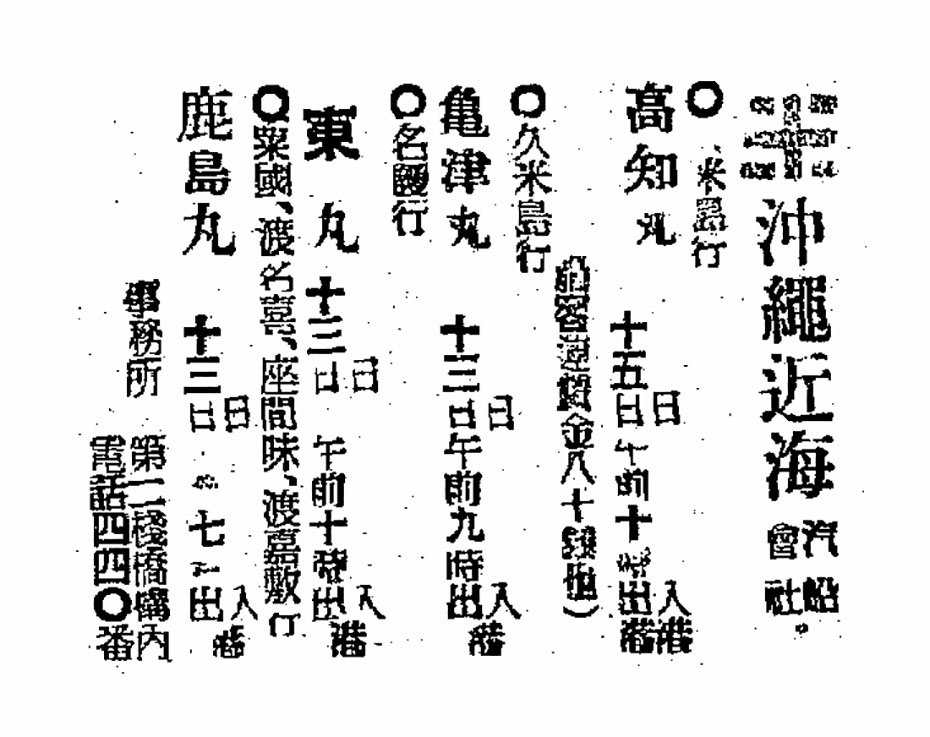 沖繩近海汽船會社
〇久米島行
高知丸 十五日 日午前十時 入港 出港
〇久米島行
亀津丸 十三日 日午前九時 入 出港
〇名護行
東丸 十三日 日 午前十時 入 出港
〇粟國、渡名喜、座間味、渡嘉敷行
鹿島丸 十三日 日 七 入 出港
事務所 第二棧橋構內
電話四四〇番